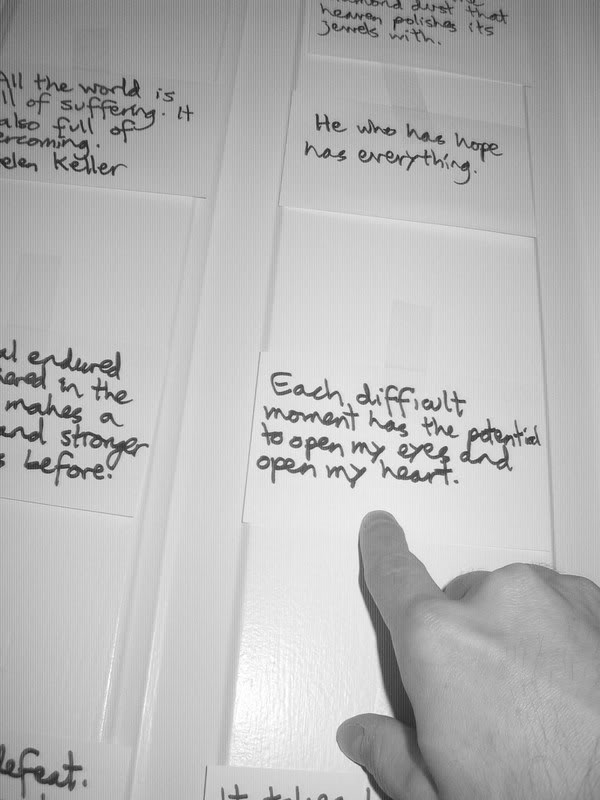 heaven polishes its
jewels with.
All the world is
of suffering. It
also full of
Keller
He who has hope
has everything.
endured
in the
makes a
and stronger
before.
Each difficult
moment has the potential
to open my eyes and
open my heart.
defeat.
It